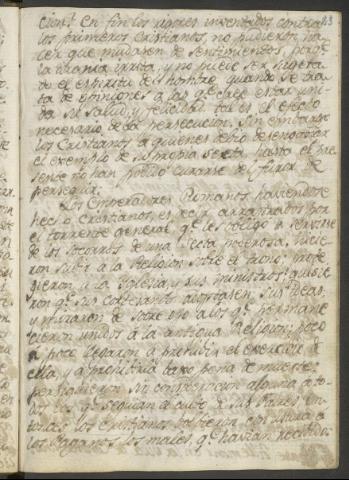 cion. En fin los rigores inventados contra
los primeros cristianos, no pudieron ha-
cer que mudasen de sentimientos, porqe
la tirania irrita, y no puede ser sugeta-
do el espiritu del hombre, quando se tra-
ta de opiniones a las qe cree estar uni-
da su salud, y felicidad tal es el efecto
necesario de la persecucion. Sin embargo
los Cristianos a quienes debio desengañar
el exemplo de su propia Secta, hasta el pre-
sente no han podido curarse del furor de
perseguir.
Los Emperadores Romanos haviendose
hecho Cristianos, es decir, arrastrados por
el torrente general, qe les obligó a servirse
de los socorros de una Secta poderosa, hicie-
ron subir a la Religion sobre el trono; prote-
gieron a la Iglesia y sus ministros; quisie-
ron qe sus cortesanos adoptasen sus ideas,
y miraron de sobre ojo a los qe permane-
cieron unidos á la antigua Religion; poco
a poco llegaron á prohibir el exercicio de
ella, y a prohibirla baxo pena de muerte;
persiguieron sin consideracion alguna a to-
dos los qe seguian el culto de sus Padres en-
tonces los cristianos bolvieron con usura a
los Paganos los males, qe havian recibido